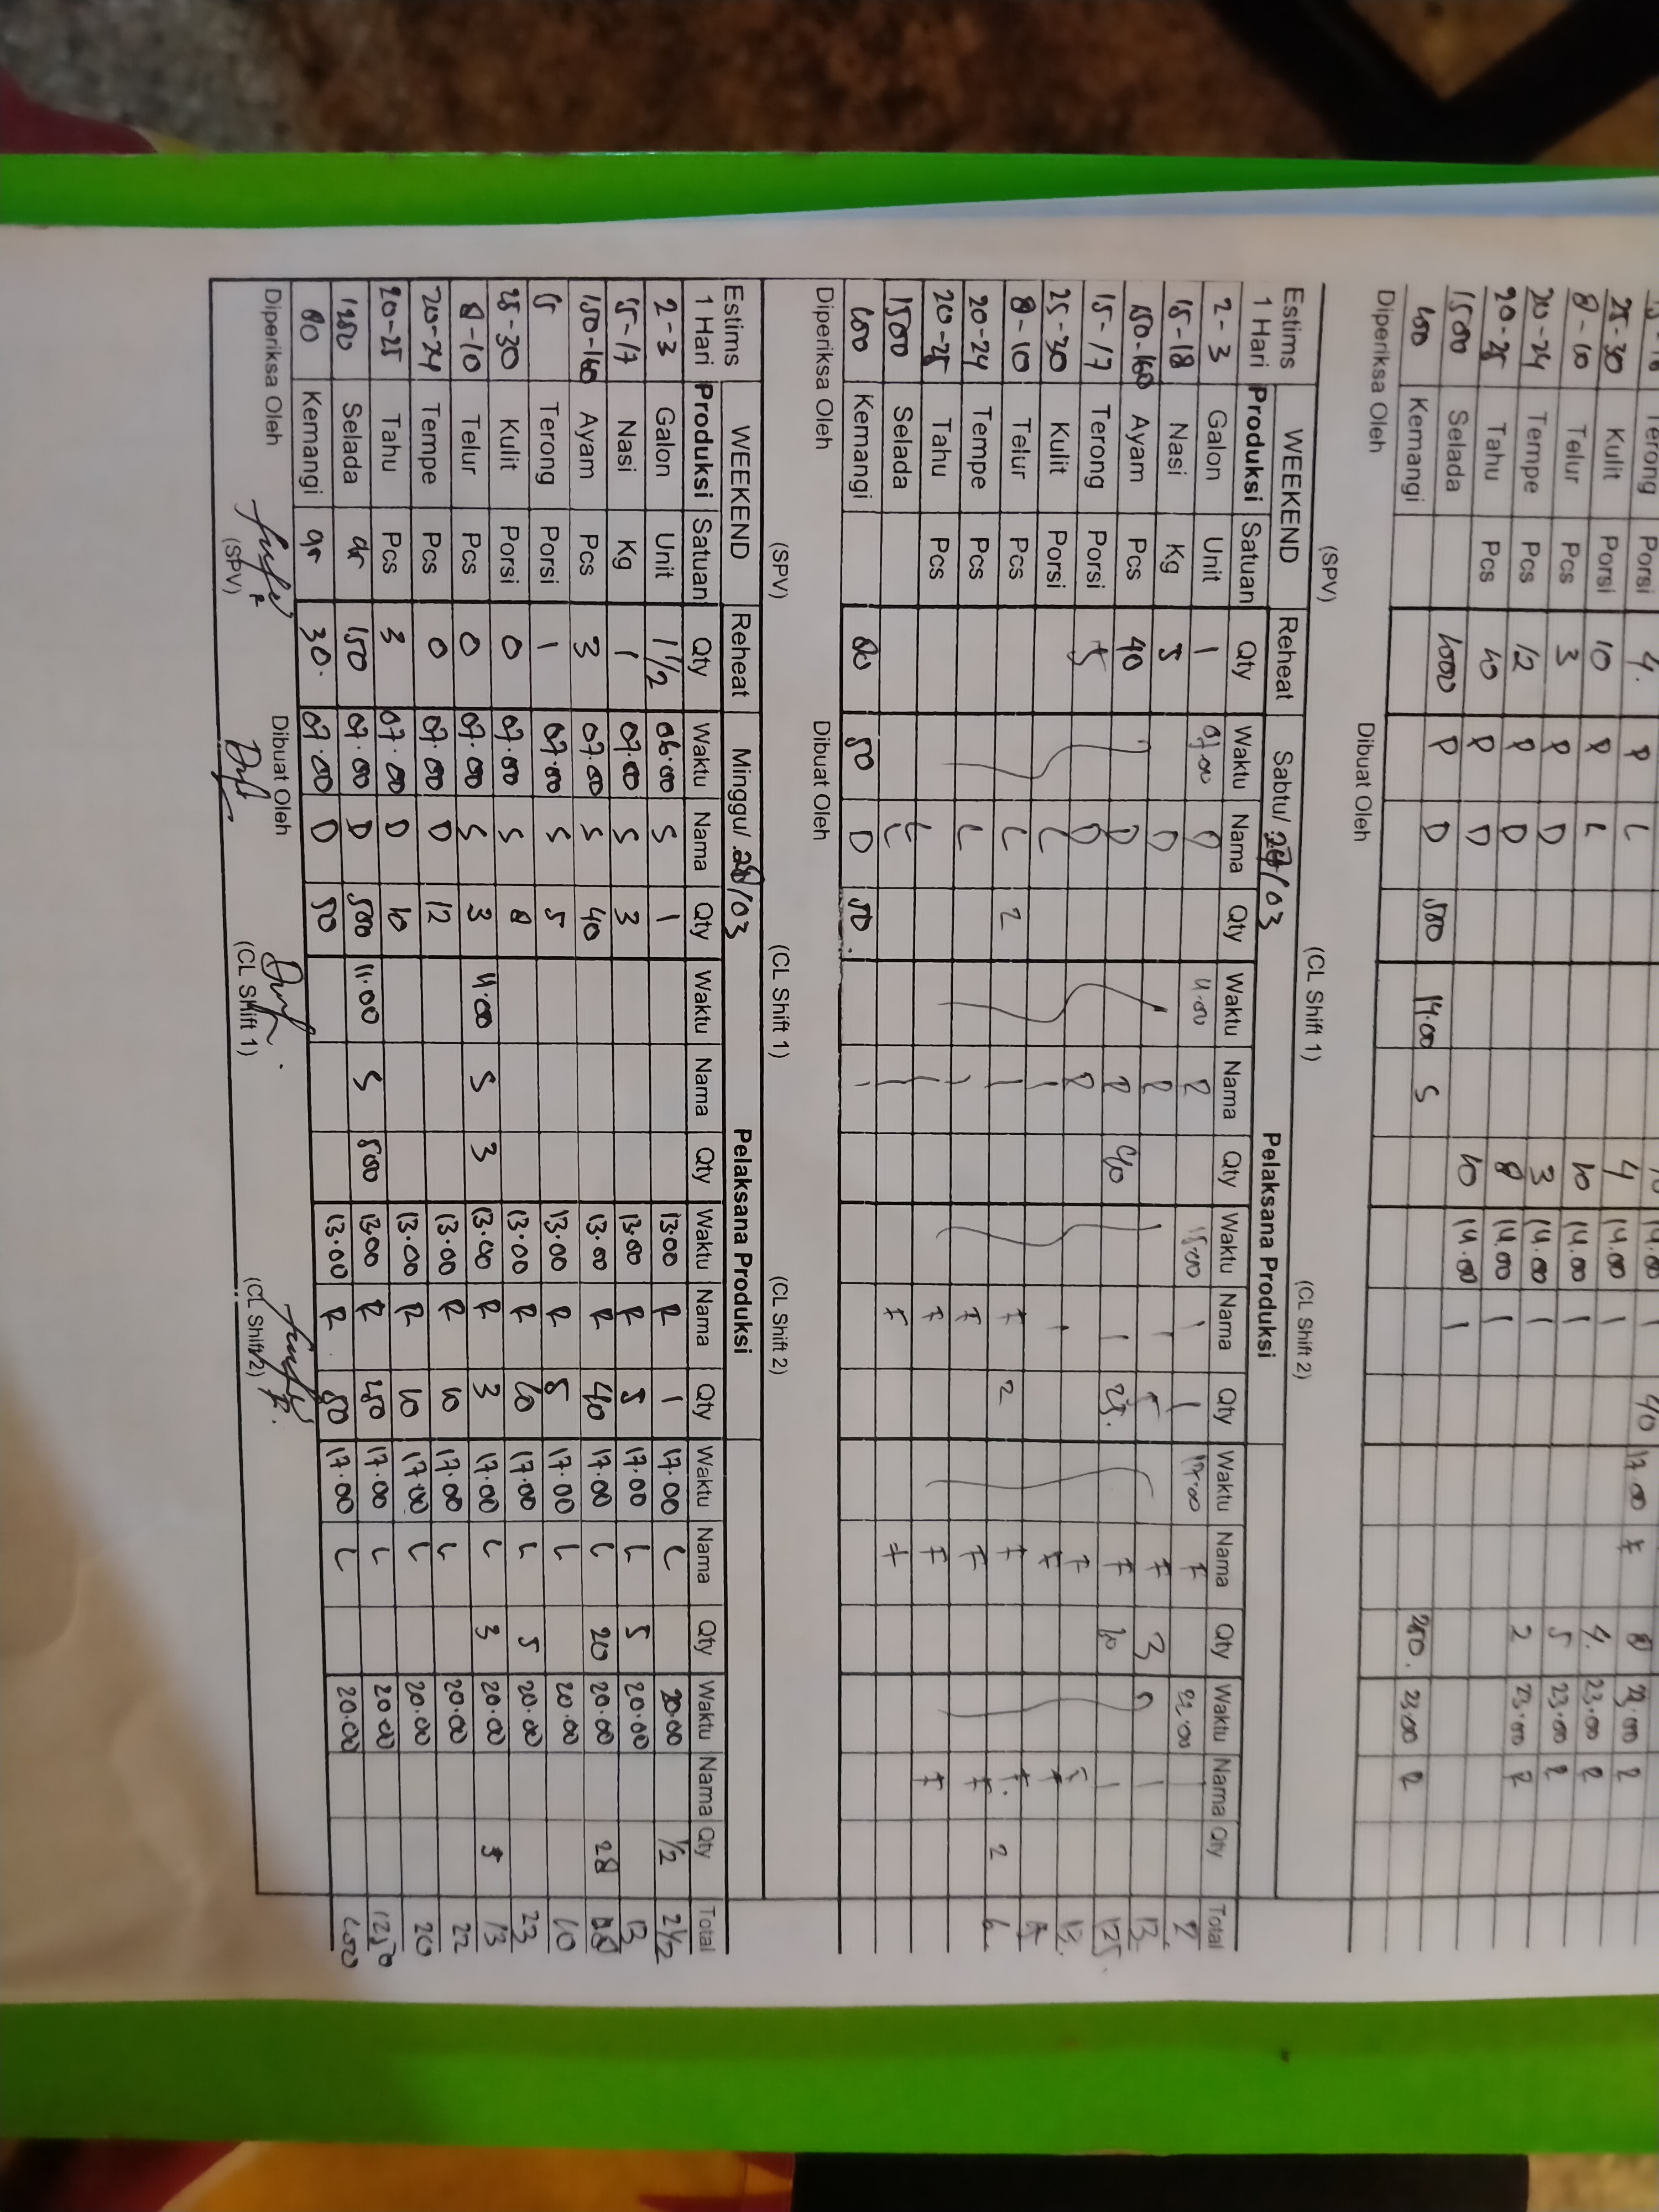 Terong Porsi 4. P L
25-30 Kulit Porsi 10 P L 4 14.00 1
8-10 Telur Pcs 3 P D 10 14.00 1
20-24 Tempe Pcs 12 P D 3 14.00 1
20-25 Tahu Pcs 10 P D 8 14.00 1
1500 Selada 1000 P D 10 14.00 1
100 Kemangi 500 14.00 S 250. 23.00 R
Diperiksa Oleh Dibuat Oleh
(SPV) (CL Shift 1) (CL Shift 2)
Estims WEEKEND Reheat Sabtu/ 27/03 Pelaksana Produksi
1 Hari Produksi Satuan Qty Waktu Nama Qty Waktu Nama Qty Waktu Nama Qty Waktu Nama Qty Waktu Nama Qty Total
2-3 Galon Unit 1 07.00 D 11.00 R 15.00 1 1 17.00 F
15-18 Nasi Kg 5 D R 5 F 3 1 13
150-160 Ayam Pcs 40 D R 40 1 25. F 10 1 125
15-17 Terong Porsi 5 D R F 12
25-30 Kulit Porsi L 1 F
8-10 Telur Pcs L 2 1 F 2 F F 2 6
20-24 Tempe Pcs L 1 F F F
20-25 Tahu Pcs 1 F F F
1500 Selada L 1 F F
100 Kemangi 80 50 D 50
Diperiksa Oleh Dibuat Oleh
(SPV) (CL Shift 1) (CL Shift 2)
Estims WEEKEND Reheat Minggu/ 28/03 Pelaksana Produksi
1 Hari Produksi Satuan Qty Waktu Nama Qty Waktu Nama Qty Waktu Nama Qty Waktu Nama Qty Waktu Nama Qty Total
2-3 Galon Unit 1 1/2 06.00 S 1 13.00 R 1 17.00 L 20.00 1/2 2 1/2
15-17 Nasi Kg 1 07.00 S 3 13.00 R 5 17.00 L 5 20.00 13
150-160 Ayam Pcs 3 07.00 S 40 13.00 R 40 17.00 L 20 20.00 28
15 Terong Porsi 1 07.00 S 5 13.00 R 5 17.00 L 20.00 10
25-30 Kulit Porsi 0 07.00 S 8 13.00 R 10 17.00 L 5 20.00 23
8-10 Telur Pcs 0 07.00 S 3 11.00 S 3 13.00 R 3 17.00 L 3 20.00 13
20-24 Tempe Pcs 0 07.00 D 12 13.00 R 10 17.00 L 20.00 22
20-25 Tahu Pcs 3 07.00 D 10 13.00 R 10 17.00 L 20.00 20
1250 Selada gr 150 07.00 D 500 11.00 S 500 13.00 R 250 17.00 L 20.00 1250
80 Kemangi gr 30. 07.00 D 50 13.00 R 50 17.00 L 20.00 100
Diperiksa Oleh Dibuat Oleh
(SPV) (CL Shift 1) (CL Shift 2)